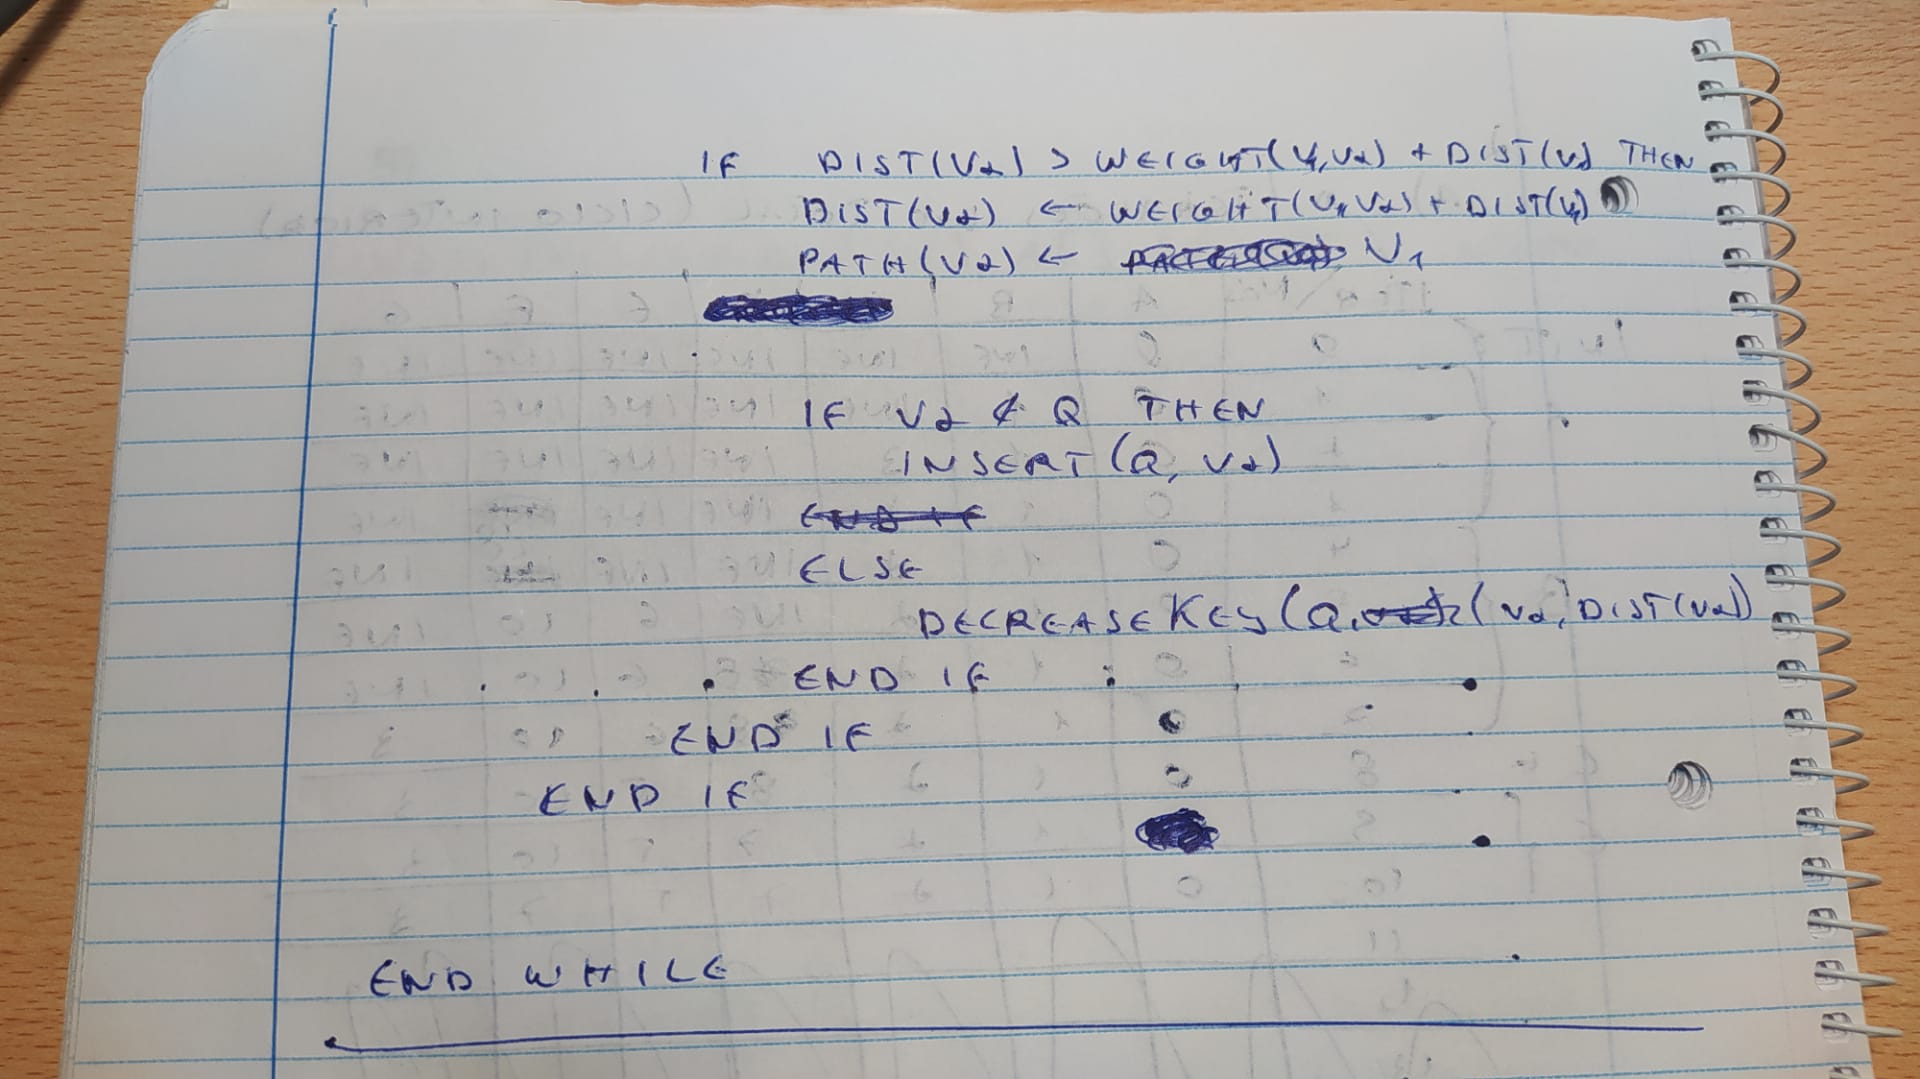 IF DIST(V2) > WEIGHT(V1,V2) + DIST(V1) THEN
DIST(V2) ← WEIGHT(V1,V2) + DIST(V1)
PATH(V2) ← V1
IF V2 ∉ Q THEN
INSERT(Q, V2)
END IF
ELSE
DECREASEKEY(Q, (V2, DIST(V2))
END IF
END IF
END IF
END WHILE